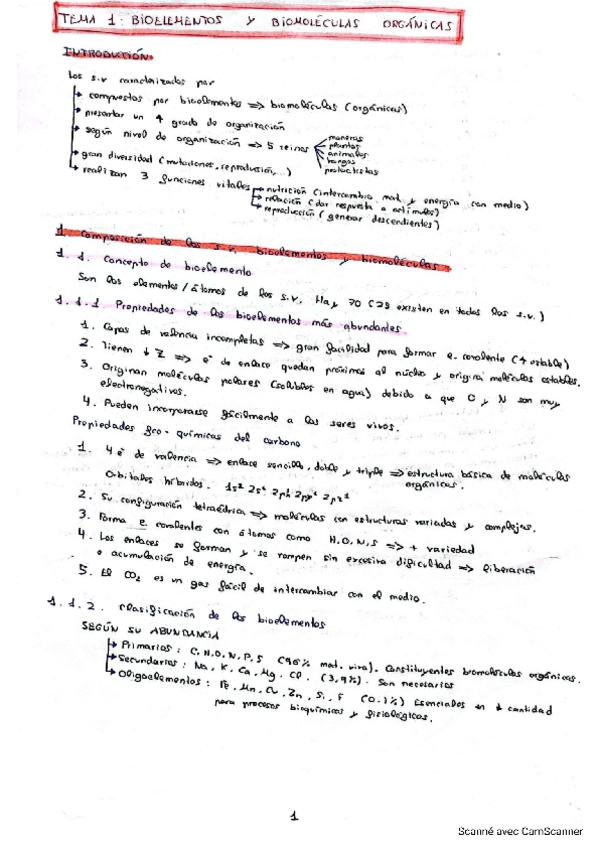 TEMA 1: BIOELEMENTOS Y BIOMOLÉCULAS ORGÁNICAS
INTRODUCCIÓN
Los s.v caracterizados por
compuestos por bioelementos => biomoléculas (orgánicas)
presentar un ↑ grado de organización
según nivel de organización => 5 reinos
moneras
plantas
animales
hongos
protoctistas
gran diversidad (mutaciones, reproducción,...)
realizan 3 funciones vitales
nutrición (intercambio mat. y energía con medio)
relación (dar respuesta a estímulos)
reproducción (generar descendientes)
1. Composición de los s.v. bioelementos y biomoléculas
1.1. Concepto de bioelemento
Son los elementos/átomos de los s.v. Hay 70 (28 existen en todos los s.v.)
1.1.1 Propiedades de los bioelementos más abundantes
1. Capas de valencia incompletas => gran facilidad para formar e. covalente (↑ estable)
2. Tienen ↓ Z => e⁻ de enlace quedan próximos al núcleo y origina moléculas estables.
3. Originan moléculas polares (solubles en agua) debido a que O y N son muy
electronegativos.
4. Pueden incorporarse fácilmente a los seres vivos.
Propiedades fco-químicas del carbono
1. 4 e⁻ de valencia => enlace sencillo, doble y triple => estructura básica de moléculas
orgánicas.
Orbitales híbridos. 1s² 2s¹
2. Su configuración tetraédrica => moléculas con estructuras variadas y complejas.
3. Forma e. covalentes con átomos como H, O, N, S => + variedad
4. Los enlaces se forman y se rompen sin excesiva dificultad => liberación
o acumulación de energía.
5. El CO₂ es un gas fácil de intercambiar con el medio.
1.1.2. Clasificación de los bioelementos
SEGÚN SU ABUNDANCIA
Primarios: C, H, O, N, P, S (96% mat. viva). Constituyentes biomoléculas orgánicas.
Secundarios: Na, K, Ca, Mg, Cl. (3,9%). Son necesarios
Oligoelementos: Fe, Mn, Cu, Zn, Si, F (0.1%) Esenciales en ↓ cantidad
para procesos bioquímicos y fisiológicos.
1
Scanné avec CamScanner